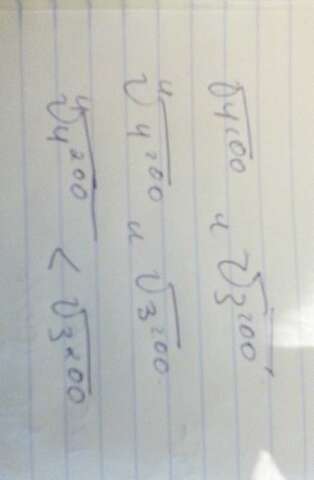 √4¹⁰⁰ и √3²⁰⁰
⁴√4²⁰⁰ и √3²⁰⁰
⁴√4²⁰⁰ < √3²⁰⁰